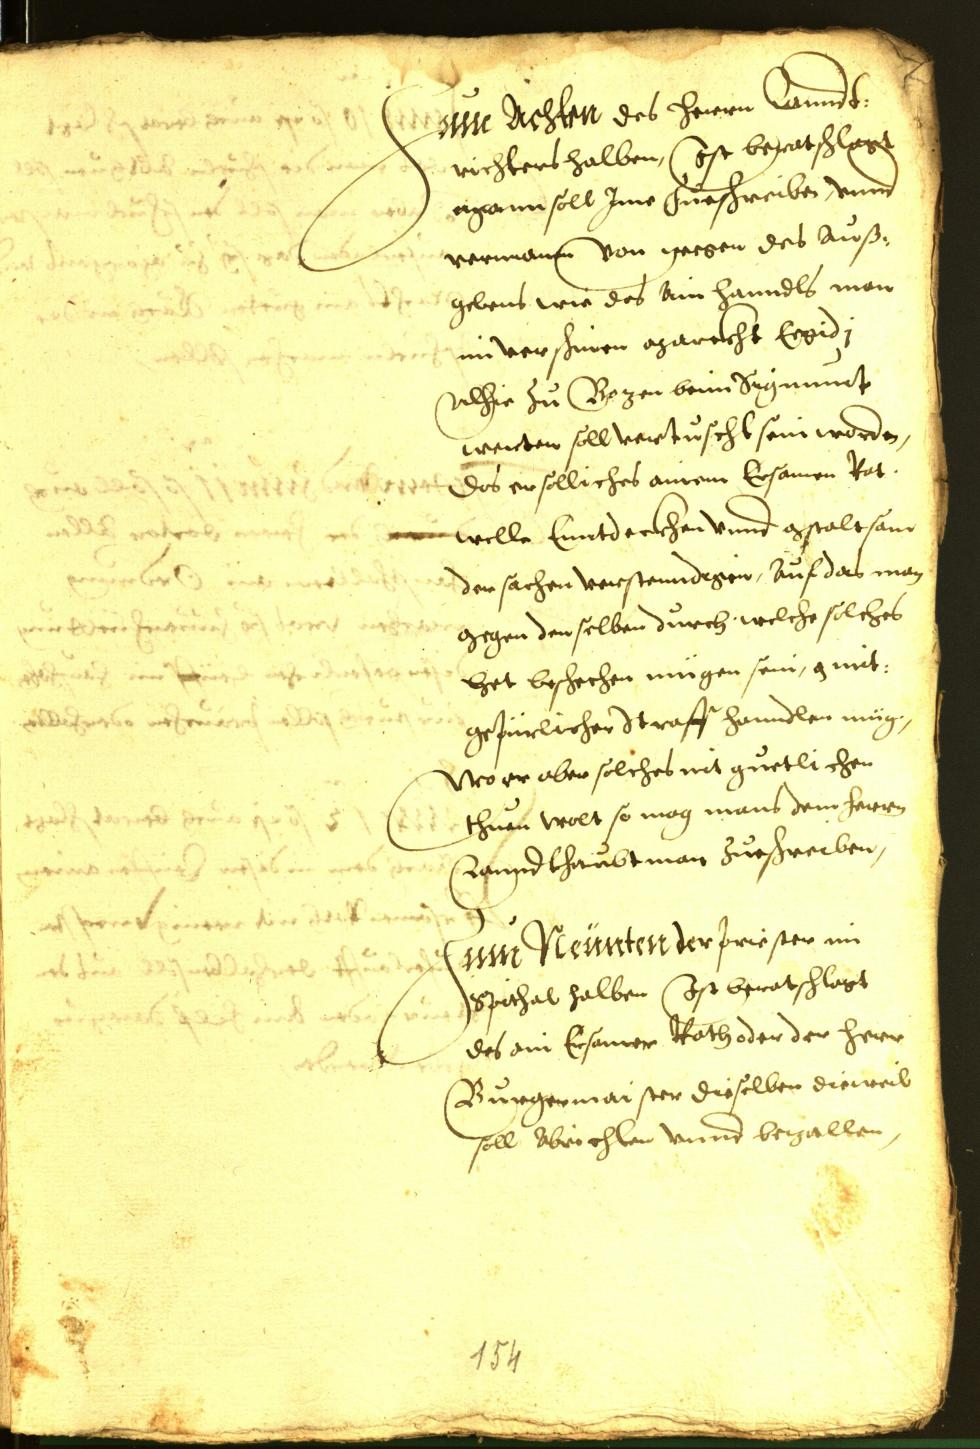 Zum Achten des herrn Lanndt-
richters halben, Ist beratschlagt
mann soll Ime Zueschreiben, vnnd
vermanen von wegen des Auß-
gebens wie das Ain hanndls man
im verschinen marckht Egidj
Alhie zu Bozen beim Sigmundt
 soll vertuscht sein worden,
Das er solliches ainem Ersamen Rat
welle Enntdeckhen vnnd gstaltsam
der sachen verstenndigen, Auf das man
gegen denselben durch welche solches
het beschechen mügen sein, mit
gepürlicher Straff hanndlen müg,
Wo er aber solches nit guetlichen
thuen wolt so mag mans dem herrn
Lanndtshaubtman Zueschreiben,
Zum Neünten der priester im
Spithal halben Ist beratschlagt
das ain Ersamer Rath oder der herr
Burgermaister dieselben dieweil
soll Abrichten vnnd bezallen,
154